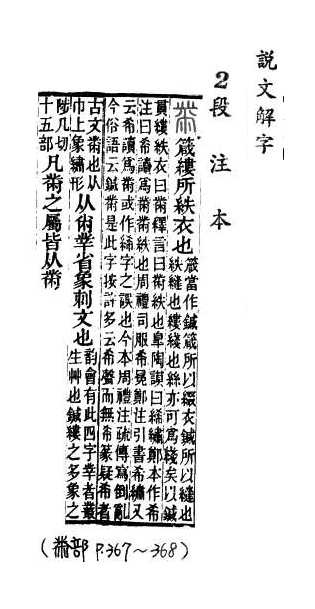 説文解字
2段注本
黹 箴縷所紩衣也 箴當作鍼箴所以綴衣鍼所以縫也
紩縫也縷綫也絲亦可爲綫矣以鍼
貫縷紩衣曰黹釋言曰黹紩也皋陶謨曰絺繡鄭本作希
注曰希讀爲黹黹紩也周禮司服希冕鄭注引書希繡又
云希讀爲黹或作絺字之誤也今本周禮注疏傳寫倒亂
今俗語云鍼黹是此字按許多云希聲而無希篆疑希者
古文黹也从
巾上象繡形 从㡀丵省象刺文也 韵會有此四字丵者叢
生艸也鍼縷之多象之
陟几切
十五部 凡黹之屬皆从黹
(黹部 P.367～368)